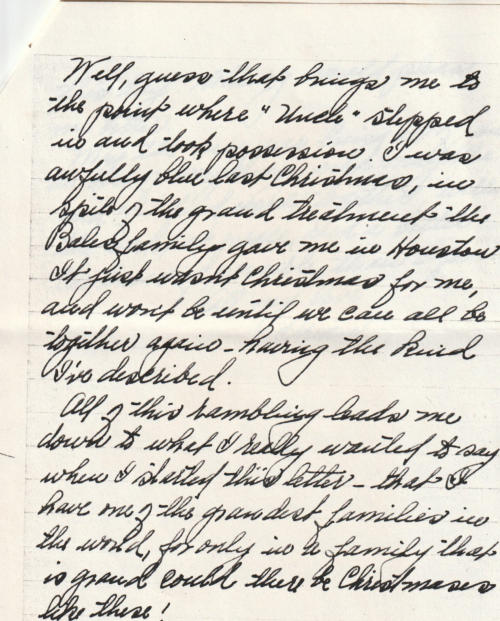 Well, guess that brings me to
the point where "Uncle" stepped
in and took possession. I was
awfully blue last Christmas, in
spite of the grand treatment the
Bales family gave me in Houston
It just wasnt Christmas for me,
and won't be until we can all be
together again - having the kind
I've described.
All of this rambling leads me
down to what I really wanted to say
when I started this letter - that I
have one of the grandest families in
the world, for only in a family that
is grand could there be Christmases
like these!